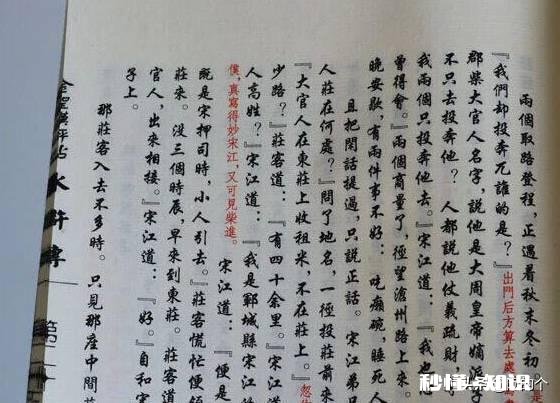 兩個取路登程，正遇着秋末冬初。
『我們却投奔兀誰的是？』出門后方算去處
郡柴大官人名字，說他是大周皇帝嫡派子
不只去投奔他？人都說他仗義疏財，
我兩個只投奔他去。』宋江道：『我也
曾得會。』兩個商量了，徑望滄州路上來。
晚安歇，有兩件事不好：吃癩碗，睡死人
且把閑話提過，只說正話。宋江弟兄
人莊在何處？』問了地名，一徑投莊前來
『大官人在東莊上收租米，不在莊上。』忽
少路？』莊客道：『有四十余里。』宋江
人高姓？』宋江道：『我是鄆城縣宋江
僕，真寫得妙宋江，又可見柴進。宋江道：『便是
既是宋押司時，小人引去。』莊客慌忙便領
莊來。没三個時辰，早來到東莊。莊客
官人，出來相接。』宋江道：『好。』自和宋
子上。
那莊客入去不多時。只見那座中間莊
金聖嘆評點水滸傳 第二
秒懂点知识